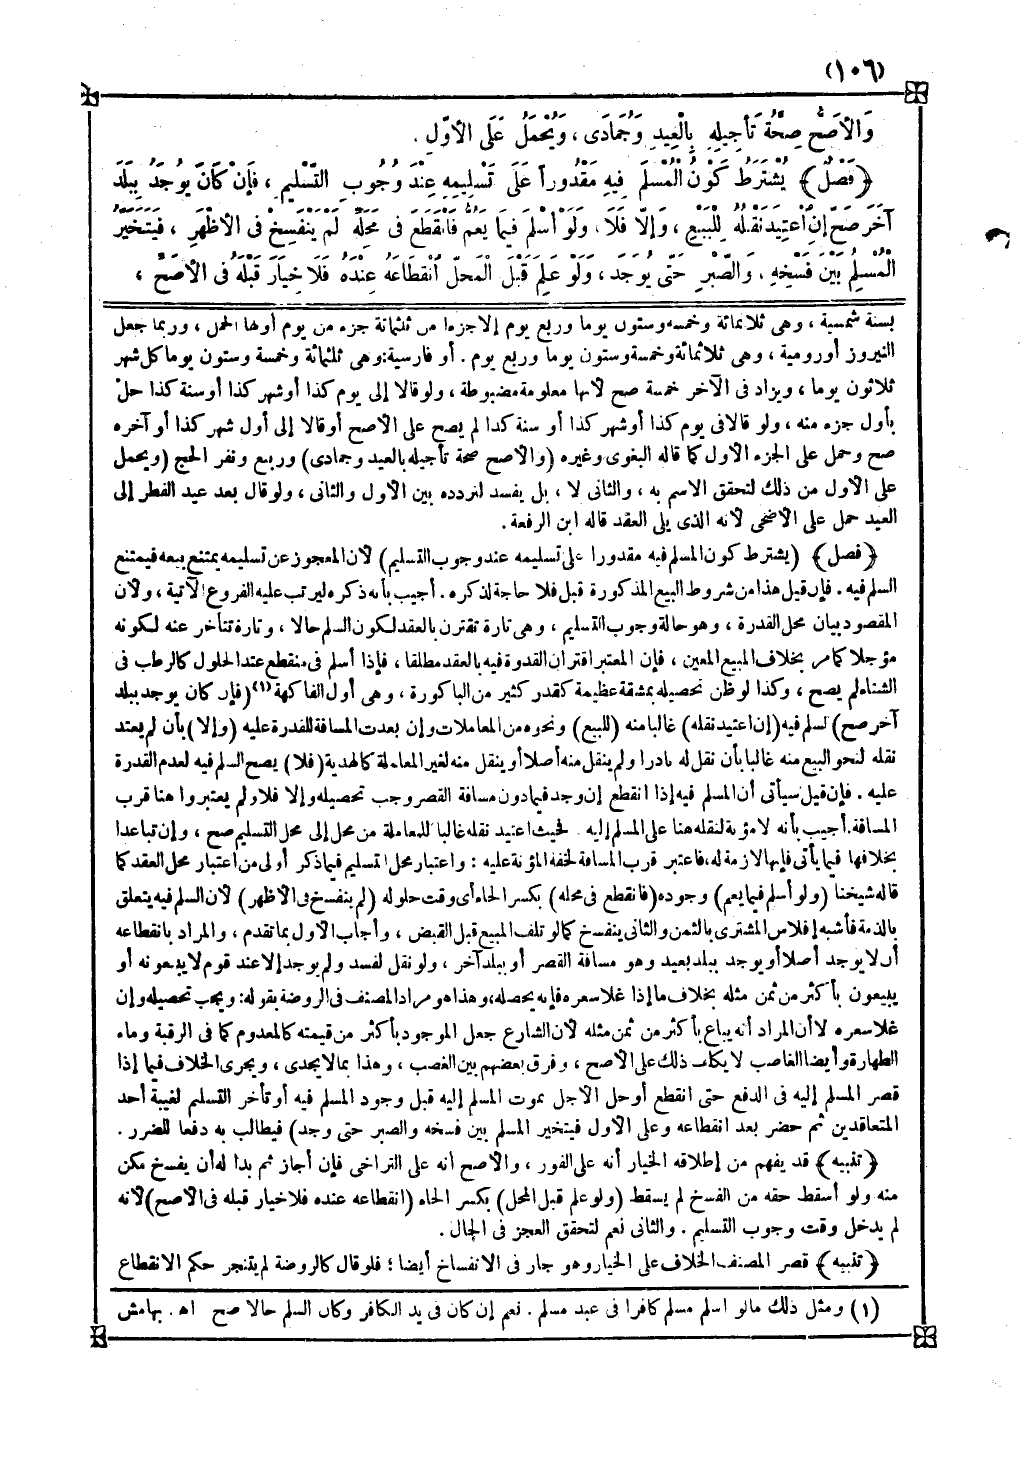 (١٠٦)
وَالْأَصَحُّ صِحَّةُ تَأْجِيلِهِ بِالْعِيدِ وَجُمَادَى ، وَيُحْمَلُ عَلَى الْأَوَّلِ .
﴿ فَصْلٌ ﴾ يُشْتَرَطُ كَوْنُ الْمُسْلَمِ فِيهِ مَقْدُوراً عَلَى تَسْلِيمِهِ عِنْدَ وُجُوبِ التَّسْلِيمِ ، فَإِنْ كَانَ يُوجَدُ بِبَلَدٍ
آخَرَ صَحَّ إِنِ اعْتِيدَ نَقْلُهُ لِلْبَيْعِ ، وَإِلَّا فَلَا ، وَلَوْ أَسْلَمَ فِيمَا يَعُمُّ فَانْقَطَعَ فِى مَحِلِّهِ لَمْ يَنْفَسِخْ فِى الْأَظْهَرِ ، فَيَتَخَيَّرُ
الْمُسْلِمُ بَيْنَ فَسْخِهِ ، وَالصَّبْرِ حَتَّى يُوجَدَ ، وَلَوْ عَلِمَ قَبْلَ الْمَحِلِّ انْقِطَاعَهُ عِنْدَهُ فَلَا خِيَارَ قَبْلَهُ فِى الْأَصَحِّ ،
بسنة شمسية ، وهى ثلاثمائة وخمسه وستون يوما وربع يوم إلا جزءا من ثلثمائة جزء من يوم أولها الحمل ، وربما جعل
النيروز أو رومية ، وهى ثلاثمائة وخمسة وستون يوما وربع يوم . أو فارسية : وهى ثلثمائة وخمسة وستون يوما كل شهر
ثلاثون يوما ، ويزاد فى الآخر خمسة صح لأنها معلومة مضبوطة ، ولو قالا إلى يوم كذا أو شهر كذا أو سنة كذا حلّ
بأول جزء منه ، ولو قالا فى يوم كذا أو شهر كذا أو سنة كذا لم يصح على الأصح أو قالا إلى أول شهر كذا أو آخره
صح وحمل على الجزء الأول كما قاله البغوى وغيره (والأصح صحة تأجيله بالعيد وجمادى) وربيع ونفر الحج (ويحمل
على الأول من ذلك لتحقق الاسم به ، والثانى لا ، بل يفسد لتردده بين الأول والثانى ، ولو قال بعد عيد الفطر إلى
العيد حمل على الأضحى لأنه الذى يلى العقد قاله ابن الرفعة .
﴿ فصل ﴾ (يشترط كون المسلم فيه مقدورا على تسليمه عند وجوب التسليم) لأن المعجوز عن تسليمه يمتنع بيعه فيمتنع
السلم فيه . فإن قيل هذا من شروط البيع المذكورة قبل فلا حاجة لذكره . أجيب بأنه ذكره ليرتب عليه الفروع الآتية ، ولأن
المقصود بيان محل القدرة ، وهو حالة وجوب التسليم ، وهى تارة تقترن بالعقد لكون السلم حالا ، وتارة تتأخر عنه لكونه
مؤجلا كما مر بخلاف المبيع المعين ، فإن المعتبر اقتران القدرة فيه بالعقد مطلقا ، فإذا أسلم فى منقطع عند الحلول كالرطب فى
الشتاء لم يصح ، وكذا لو ظن تحصيله بمشقة عظيمة كقدر كثير من الباكورة ، وهى أول الفاكهة (١) (فإن كان يوجد ببلد
آخر صح) السلم فيه (إن اعتيد نقله) غالبا منه (للبيع) ونحوه من المعاملات وإن بعدت المسافة للقدرة عليه (وإلا) بأن لم يعتد
نقله لنحو البيع منه غالبا بأن نقل له نادرا ولم ينقل منه أصلا أو ينقل منه لغير المعاملة كالهدية (فلا) يصح السلم فيه لعدم القدرة
عليه . فإن قيل سيأتى أن المسلم فيه إذا انقطع إن وجد فيما دون مسافة القصر وجب تحصيله وإلا فلا ولم يعتبروا هنا قرب
المسافة . أجيب بأنه لا مؤنة لنقله هنا على المسلم إليه فحيث اعتيد نقله غالبا للمعاملة من محل إلى محل التسليم صح ، وإن تباعدا
بخلافها فيما يأتى فإنها لازمة له ، فاعتبر قرب المسافة لخفة المؤنة عليه : واعتبار محل التسليم فيما ذكر أولى من اعتبار محل العقد كما
قاله شيخنا (ولو أسلم فيما يعم) وجوده (فانقطع فى محله) بكسر الحاء أى وقت حلوله (لم ينفسخ فى الأظهر) لأن السلم فيه يتعلق
بالذمة فأشبه إفلاس المشترى بالثمن والثانى ينفسخ كما لو تلف المبيع قبل القبض ، وأجاب الأول بما تقدم ، والمراد بانقطاعه
أن لا يوجد أصلا أو يوجد ببلد بعيد وهو مسافة القصر أو ببلد آخر ، ولو نقل لفسد ولم يوجد إلا عند قوم لا يدعونه أو
يبيعون بأكثر من ثمن مثله بخلاف ما إذا غلا سعره فإنه يحصله ، وهذا هو مراد المصنف فى الروضة بقوله : ويجب تحصيله وإن
غلا سعره لا أن المراد أنه يباع بأكثر من ثمن مثله لأن الشارع جعل الموجود بأكثر من قيمته كالمعدوم كما فى الرقبة وماء
الطهارة وأيضا الغاصب لا يكلف ذلك على الأصح ، وفرق بعضهم بين الغصب ، وهذا بما لا يجدى ، ويجرى الخلاف فيما إذا
قصر المسلم إليه فى الدفع حتى انقطع أو حل الأجل بموت المسلم إليه قبل وجود المسلم فيه أو تأخر التسليم لغيبة أحد
المتعاقدين ثم حضر بعد انقطاعه وعلى الأول فيتخير المسلم بين فسخه والصبر حتى وجد) فيطالب به دفعا للضرر .
﴿ تنبيه ﴾ قد يفهم من إطلاقه الخيار أنه على الفور ، والأصح أنه على التراخى فإن أجاز ثم بدا له أن يفسخ مكن
منه ولو أسقط حقه من الفسخ لم يسقط (ولو علم قبل المحل) بكسر الحاء (انقطاعه عنده فلا خيار قبله فى الأصح) لأنه
لم يدخل وقت وجوب التسليم . والثانى نعم لتحقق العجز فى الحال .
﴿ تنبيه ﴾ قصر المصنف الخلاف على الخيار وهو جار فى الانفساخ أيضا ؛ فلو قال كالروضة لم يتنجز حكم الانقطاع
(١) ومثل ذلك ما لو اسلم مسلم كافرا فى عبد مسلم . نعم إن كان فى يد الكافر وكان السلم حالا صح اه . بهامش